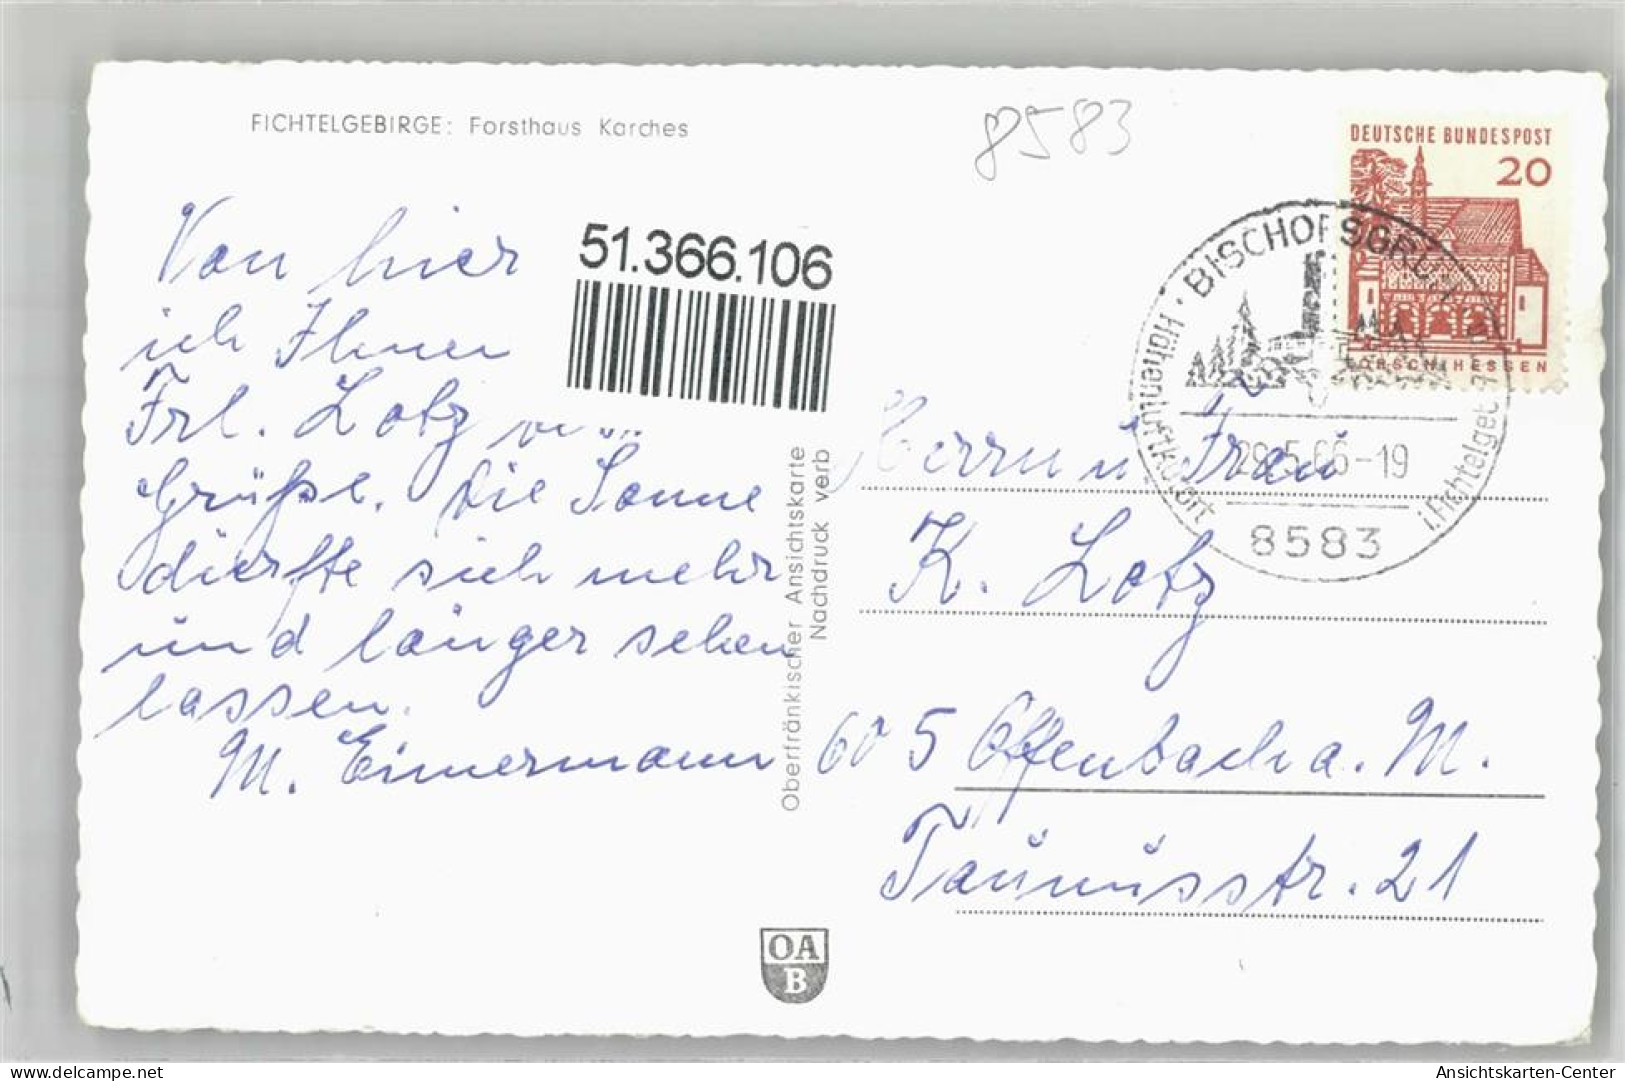 FICHTELGEBIRGE: Forsthaus Karches
8583
DEUTSCHE BUNDESPOST
20
LORSCH/HESSEN
BISCHOFSGRÜN
Höhenluftkurort
i. Fichtelgeb.
.5.66-19
8583
51.366.106
Von hier
ich Ihnen
Frl. Lotz
Grüße. Die Sonne
dürfte sich mehr
und länger sehen
lassen.
M. Eimermann
Oberfränkischer Ansichtskarte
Nachdruck verb
Herrn u. Frau
K. Lotz
605 Offenbach a. M.
Taunusstr. 21
OA
B
www.delcampe.net
Ansichtskarten-Center